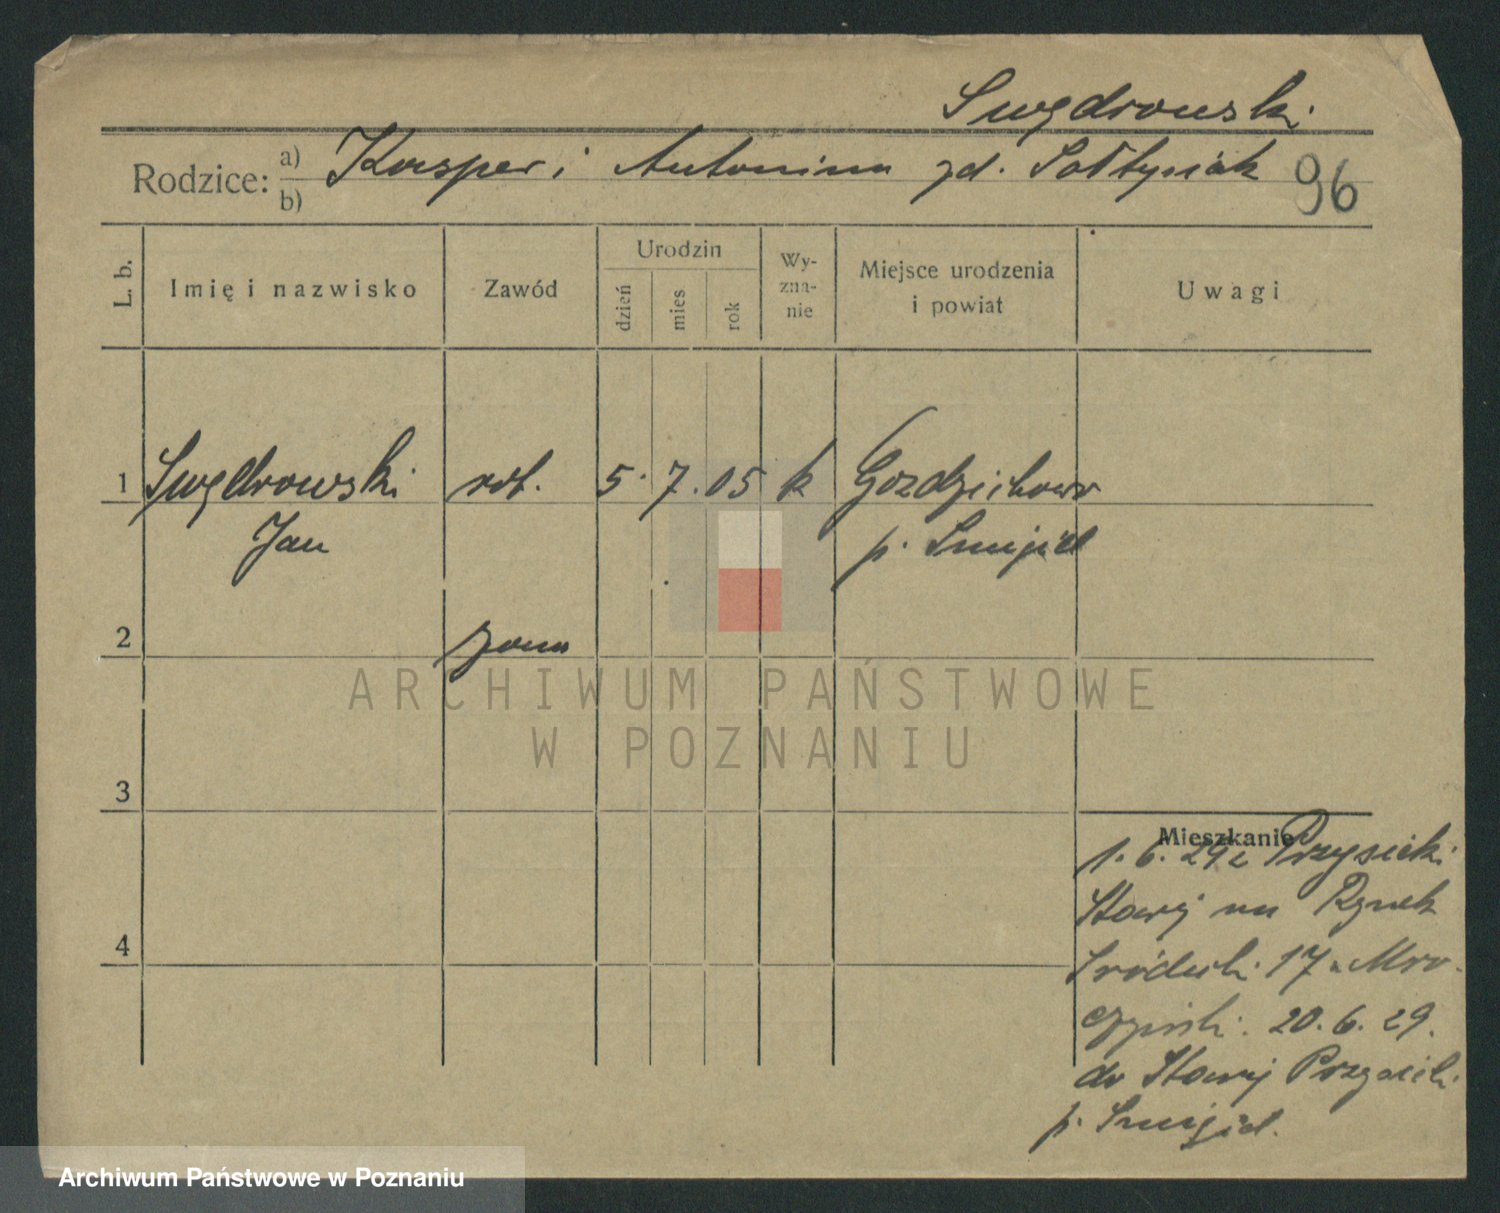 Swędrowski
Rodzice: a) Kasper i Antonina zd. Sołtysiak 96
b)
L. b. Imię i nazwisko Zawód Urodzin dzień mies rok Wy-zna-nie Miejsce urodzenia i powiat Uwagi
1 Swędrowski rob. 5. 7. 05 k Gozdzichowo
Jan p. Śmigiel
2 żona
3
Mieszkanie
1. 6. 29 z Przysieki
Starej na Rynek
4
Śródecki 17 u Mro-
czyński. 20. 6. 29.
do Starej Przysieki
p. Śmigiel.
ARCHIWUM PAŃSTWOWE
W POZNANIU
Archiwum Państwowe w Poznaniu